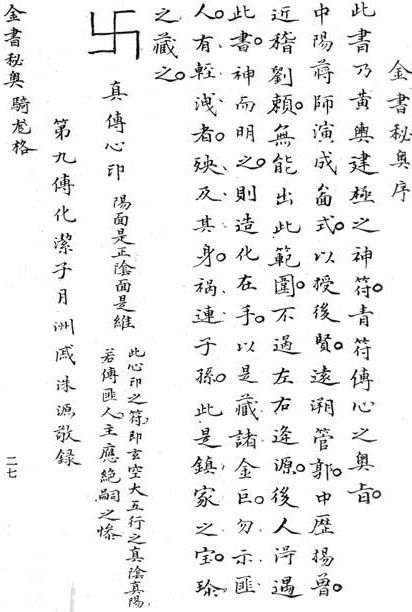 金書秘奧序
此書乃黃輿建極之神符。青符傳心之奧旨。
中陽蔣師演成式。以授後賢。遠溯管郭。中歷楊曾。
近稽劉賴。無能出此範圍。不過左右逢源。後人淂遇
此書。神而明之。則造化在手。以是藏諸金匱。勿示匪
人。有輊洩者。殃及其身。禍連子孫。此是鎮家之宝。珍
之藏之。
卐 真傳心印 陽面是正陰面是維
此心印之符。即玄空大五行之真陰真陽。
若傳匪人。主應絕嗣之慘
第九傳化潔子月洲戚洙源敬錄
金書秘奧騎龙格
二七